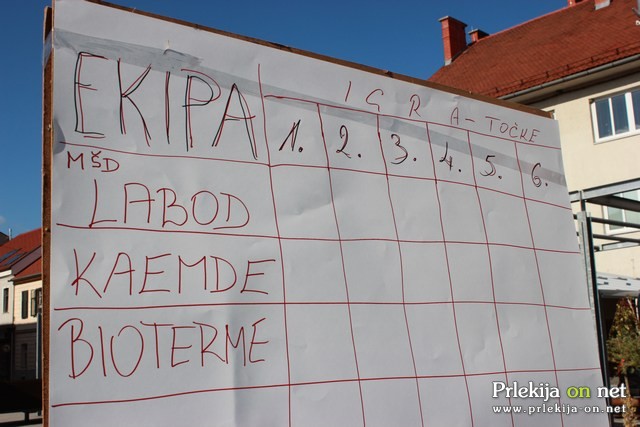 EKIPA
IGRA-TOČKE
1. 2. 3. 4. 5. 6.
MŠD
LABOD
KAEMDE
BIOTERME
Prlekija on net
www.prlekija-on.net